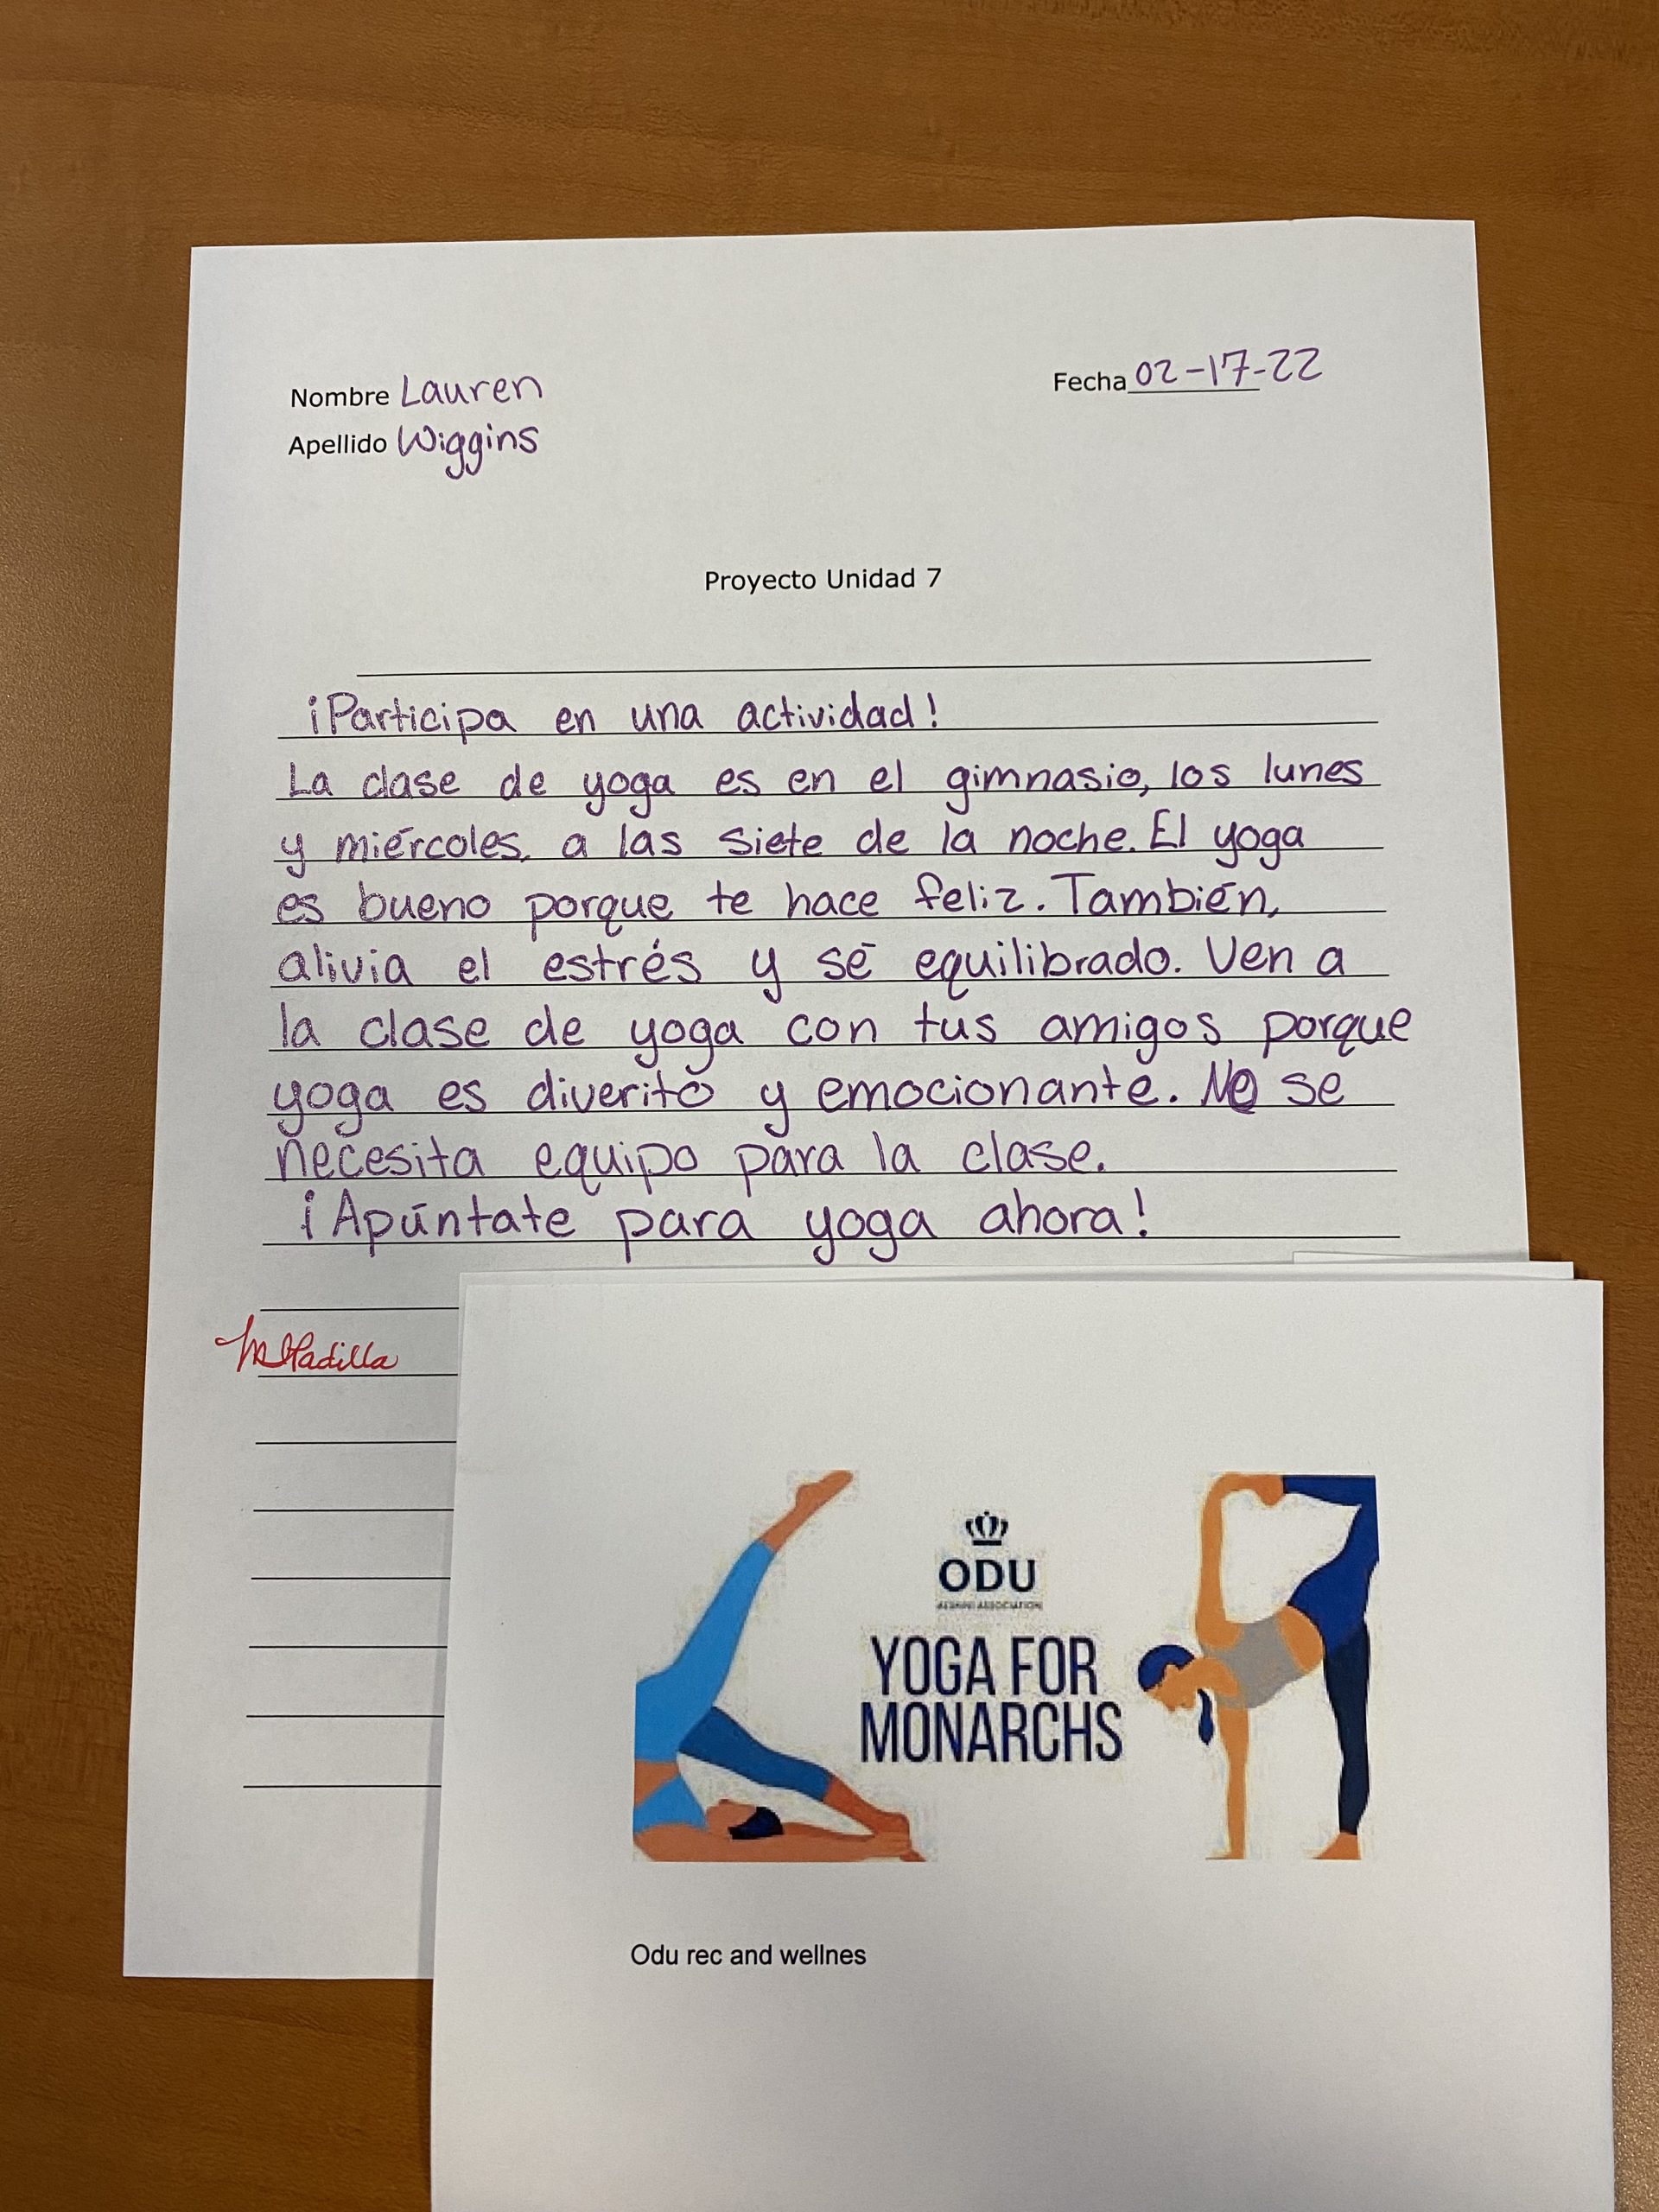 Nombre Lauren
Fecha 02-17-22
Apellido Wiggins
Proyecto Unidad 7
¡Participa en una actividad!
La clase de yoga es en el gimnasio, los lunes
y miércoles, a las siete de la noche. El yoga
es bueno porque te hace feliz. También,
alivia el estrés y sé equilibrado. Ven a
la clase de yoga con tus amigos porque
yoga es diverito y emocionante. No se
necesita equipo para la clase.
¡Apúntate para yoga ahora!
ODU
ALUMNI ASSOCIATION
YOGA FOR
MONARCHS
Odu rec and wellnes